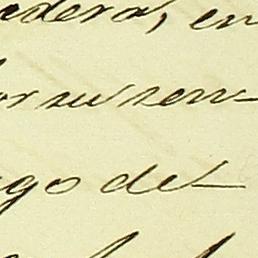 adera, en
or su sen-
go de